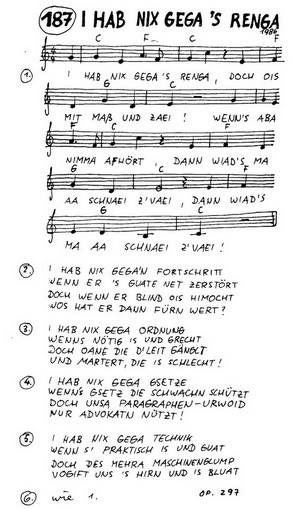 187 I HAB NIX GEGA 'S RENGA
1986
C F C F
1. I HAB NIX GEGA 'S RENGA, DOCH OIS
G C
MIT MAß UND ZAEI! WENN'S ABA
F C F
NIMMA AFHÖRT, DANN WIAD'S MA
G C
AA SCHNAEI Z'VAEI, DANN WIAD'S
G C
MA AA SCHNAEI Z'VAEI!
2. I HAB NIX GEGA'N FORTSCHRITT
WENN ER 'S GUATE NET ZERSTÖRT
DOCH WENN ER BLIND OIS HIMOCHT
WOS HAT ER DANN FÜRN WERT?
3. I HAB NIX GEGA ORDNUNG
WENNS NÖTIG IS UND GRECHT
DOCH OANE DIE D'LEIT GÄNGLT
UND MARTERT, DIE IS SCHLECHT!
4. I HAB NIX GEGA GSETZE
WENN'S GSETZ DIE SCHWACHN SCHÜTZT
DOCH UNSA PARAGRAPHEN-URWOID
NUR ADVOKATN NÜTZT!
5. I HAB NIX GEGA TECHNIK
WENN S' PRAKTISCH IS UND GUAT
DOCH DES MEHRA MASCHINENGLUMP
VOGIFT UNS 'S HIRN UND IS BLUAT
6. wie 1. OP. 297